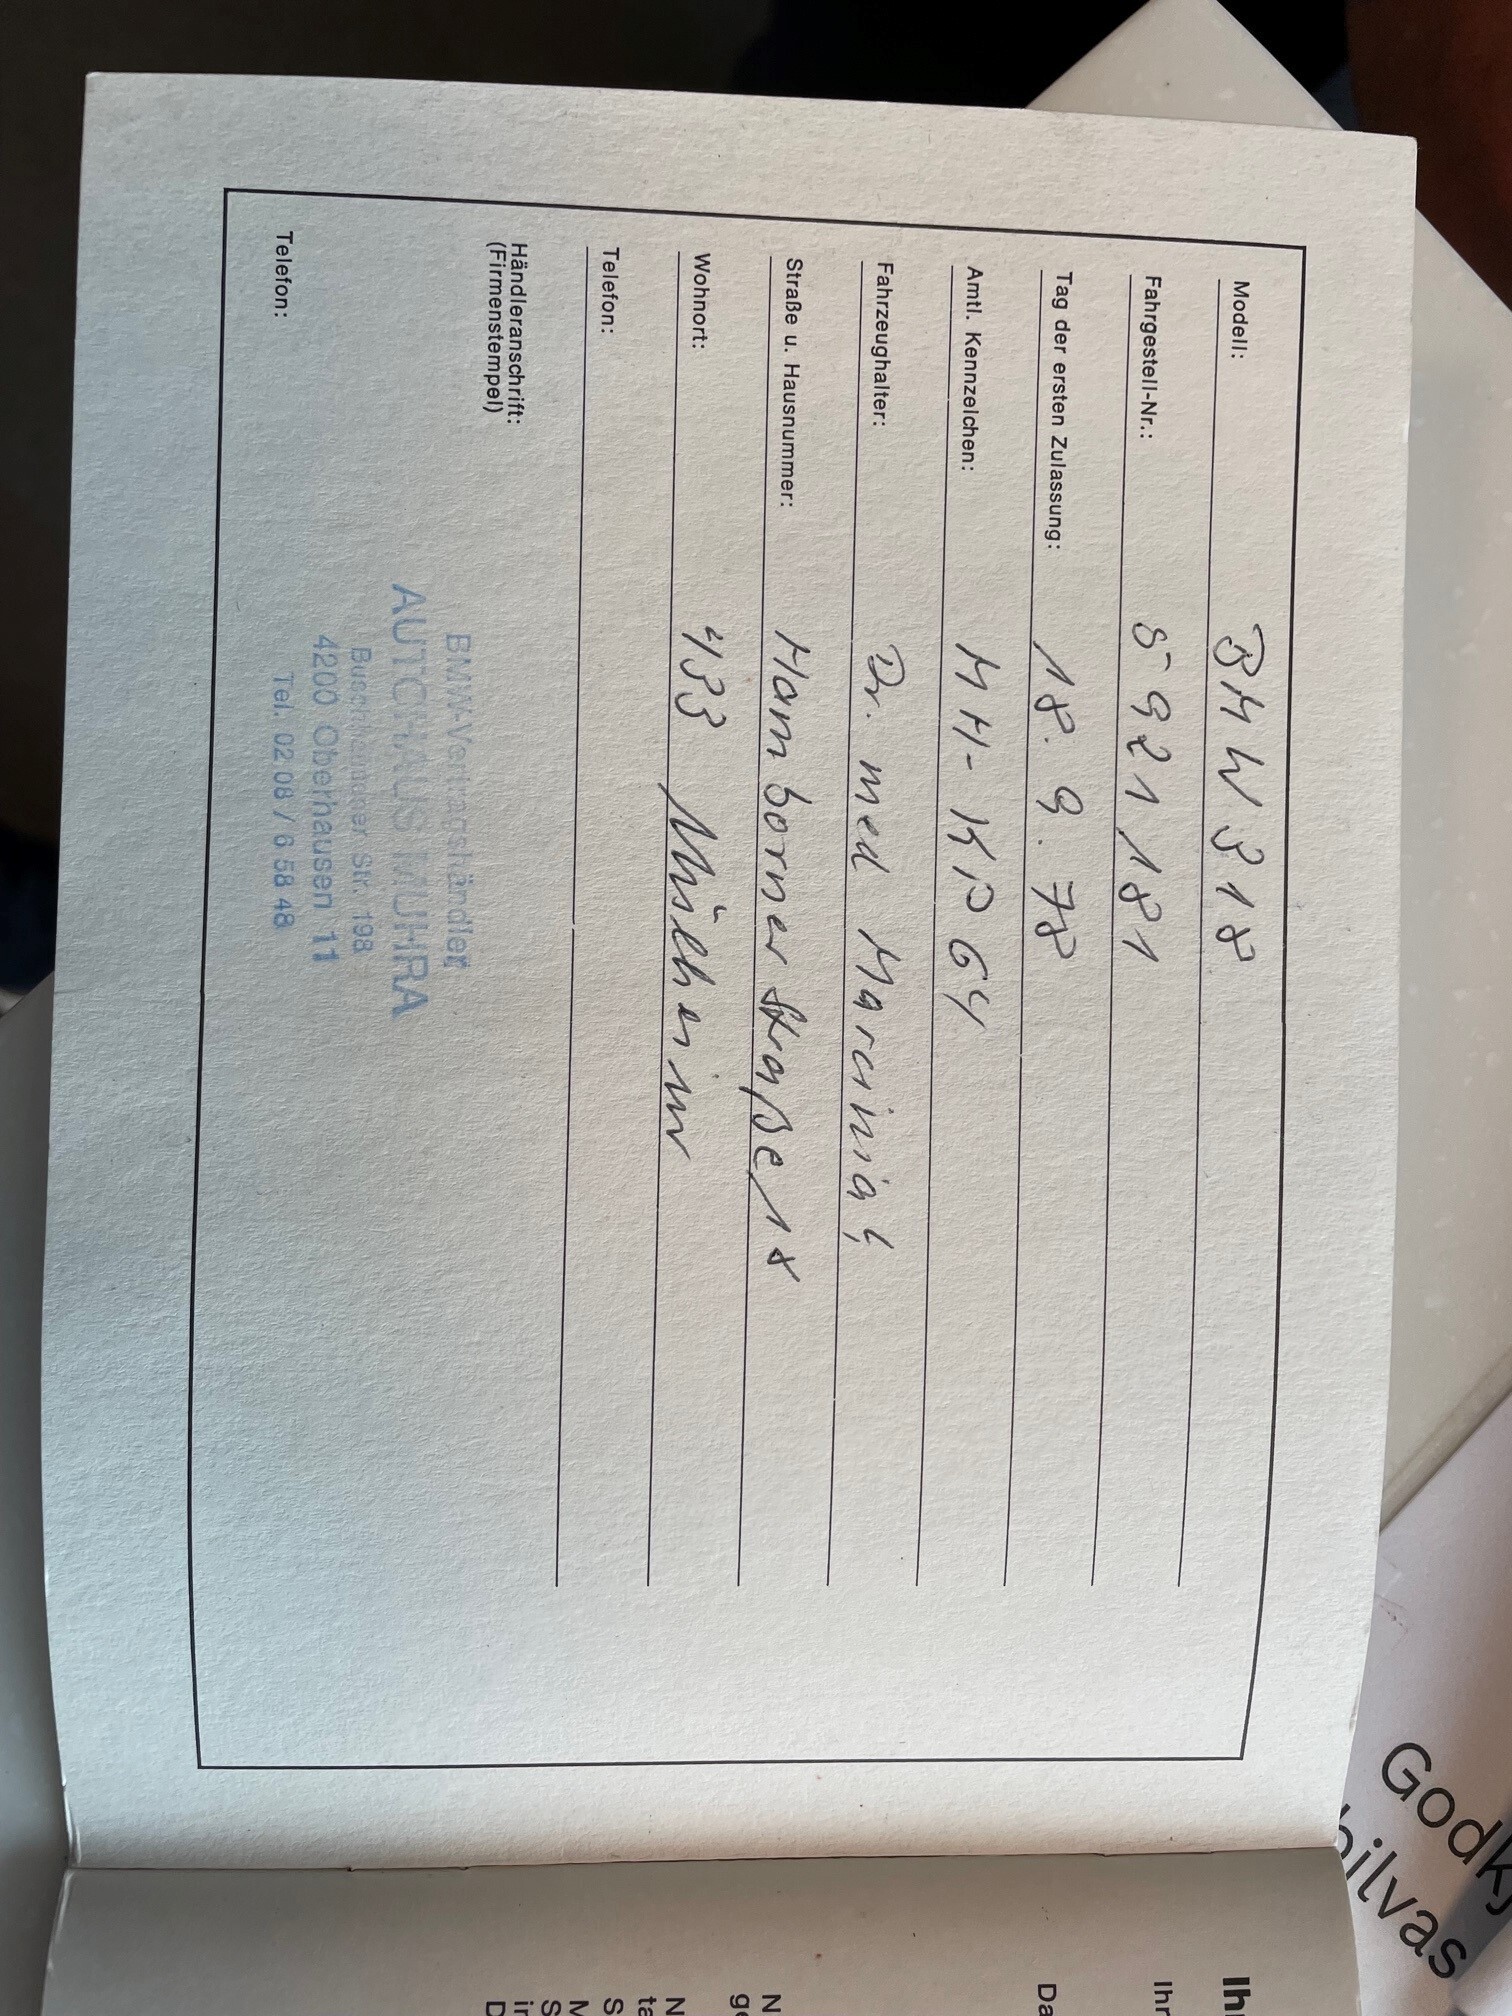 Modell: BMW 318
Fahrgestell-Nr.: 5921181
Tag der ersten Zulassung: 18. 9. 78
Amtl. Kennzeichen: MH-KP 64
Fahrzeughalter: Dr. med
Straße u. Hausnummer: Hamborner Straße 18
Wohnort: 433 Mülheim
Telefon:
Händleranschrift:
(Firmenstempel)
BMW-Vertragshändler
AUTOHAUS MUHRA
Str. 198
4200 Oberhausen 11
Tel. 02 08 / 6 58 48
Telefon:
Godkj
bilvas
Ih
Ihr
Da
N
ge
N
ta
S
M
S
in
D